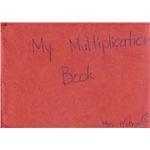 My Multiplication
Book